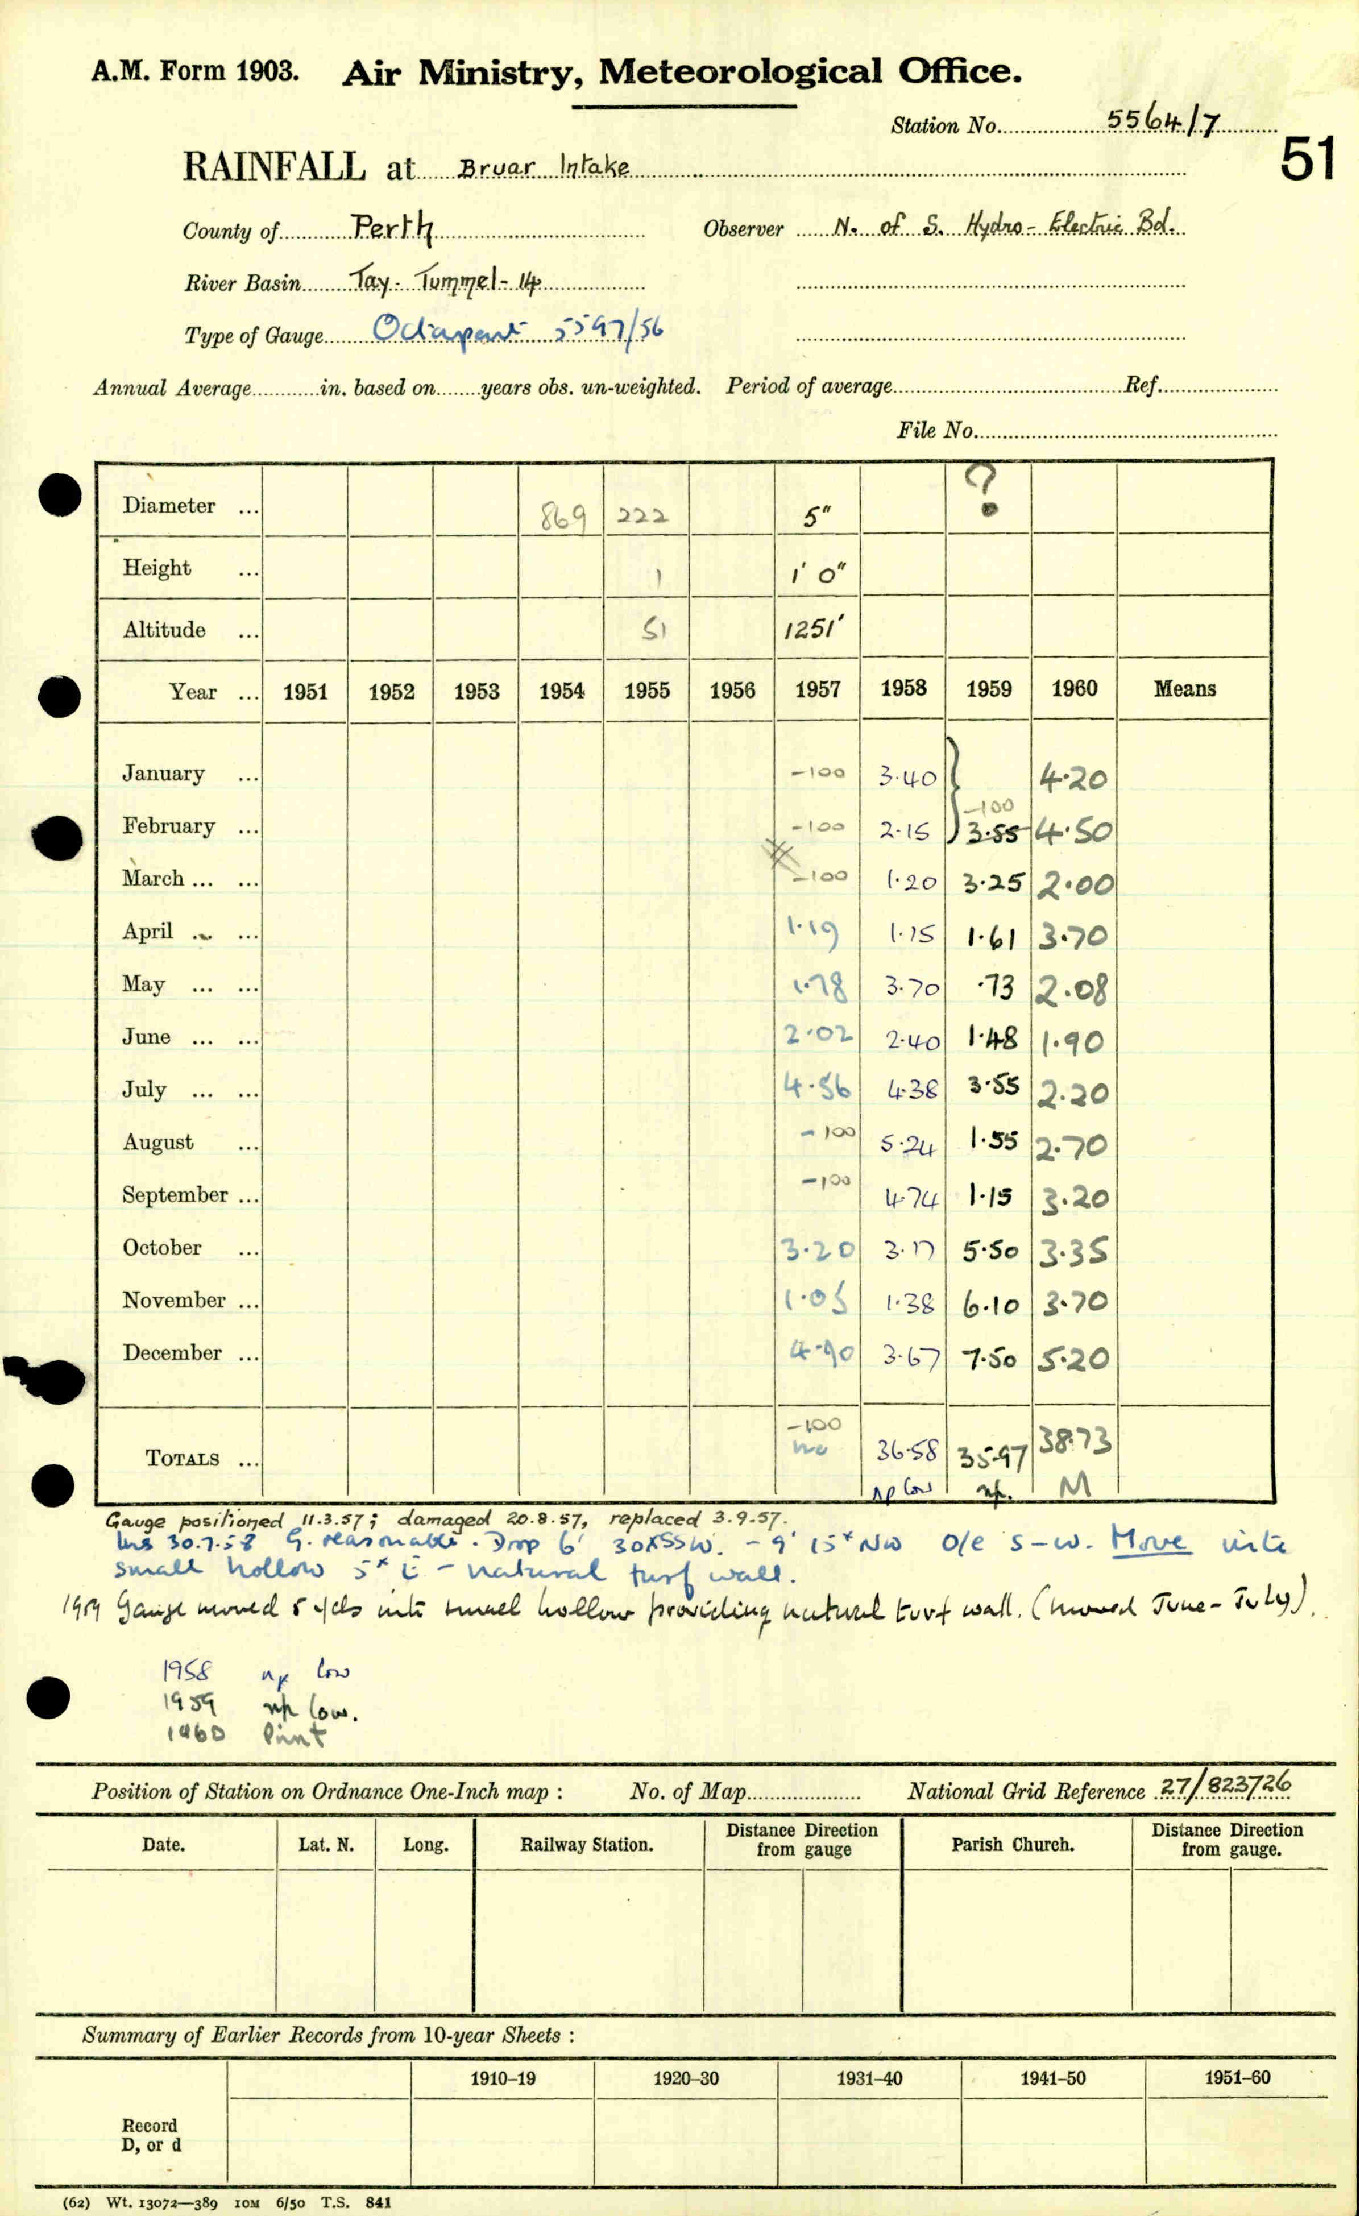 A.M. Form 1903. Air Ministry, Meteorological Office.
Station No. 5564/7
51
RAINFALL at Bruar Intake
County of Perth Observer N. of S. Hydro-Electric Bd.
River Basin Tay-Tummel-14
Type of Gauge Octapent 5597/56
Annual Average in. based on years obs. un-weighted. Period of average Ref.
File No.
Diameter ... 869 222 5" ?
Height ... 1 1' 0"
Altitude ... 51 1251'
Year ... 1951 1952 1953 1954 1955 1956 1957 1958 1959 1960 Means
January ... -100 3.40 } 4.20
-100
February ... -100 2.15 3.55 4.50
March ... ... -100 1.20 3.25 2.00
April ... ... 1.19 1.15 1.61 3.70
May ... ... 1.78 3.70 .73 2.08
June ... ... 2.02 2.40 1.48 1.90
July ... ... 4.56 4.38 3.55 2.20
August ... -100 5.24 1.55 2.70
September ... -100 4.74 1.15 3.20
October ... 3.20 3.17 5.50 3.35
November ... 1.05 1.38 6.10 3.70
December ... 4.90 3.67 7.50 5.20
-100
TOTALS ... 36.58 35.97 38.73
np low np. M
Gauge positioned 11.3.57; damaged 20.8.57, replaced 3.9.57.
Ins 30.7.58 G. reasonable. Drop 6' 30xSSW. - 9' 15x NW o/e S-W. Move into
small hollow 5x E - natural turf wall.
1959 Gauge moved 5 yds into small hollow providing natural turf wall. (moved June-July).
1958 np low
1959 np low.
1960 Print
Position of Station on Ordnance One-Inch map : No. of Map National Grid Reference 27/823726
Date. Lat. N. Long. Railway Station. Distance Direction from gauge Parish Church. Distance Direction from gauge.
Summary of Earlier Records from 10-year Sheets :
1910–19 1920–30 1931–40 1941–50 1951–60
Record
D, or d
(62) Wt. 13072—389 10M 6/50 T.S. 841